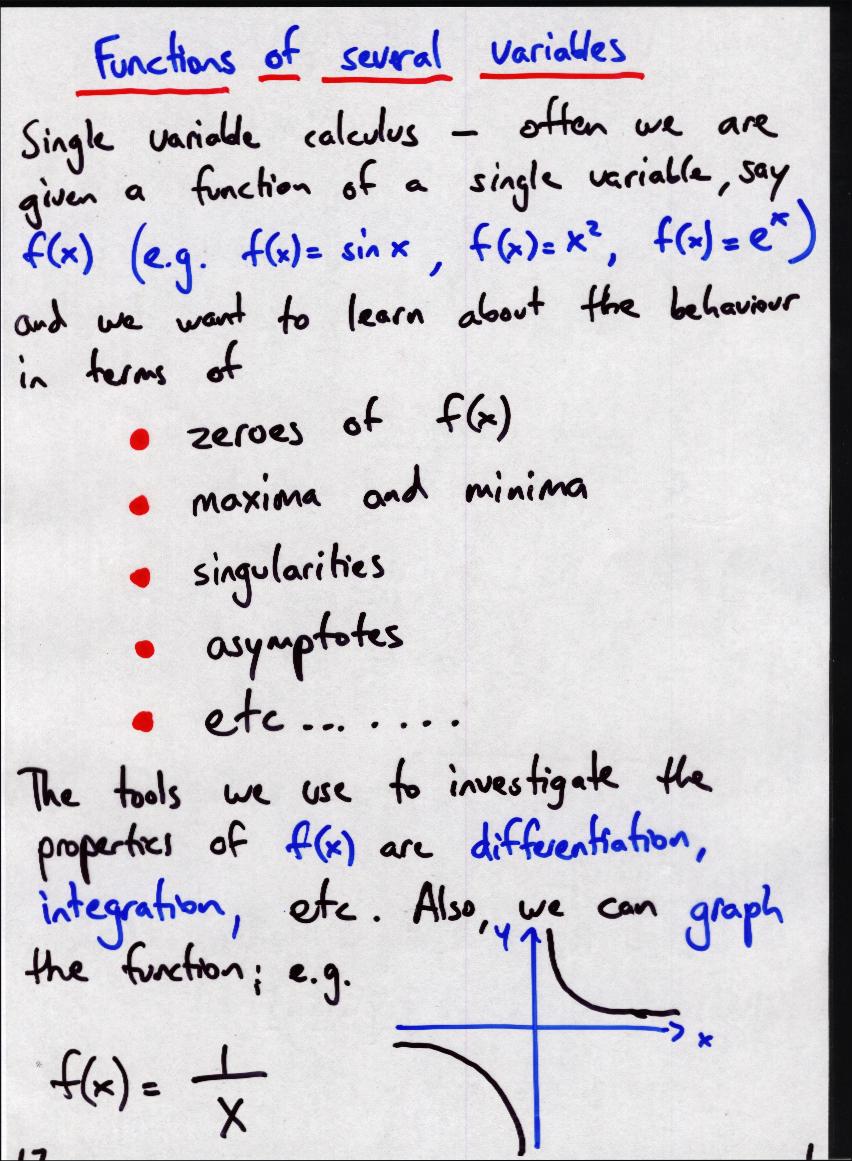 Functions of several variables
Single variable calculus – often we are
given a function of a single variable, say
f(x) (e.g. f(x) = sin x, f(x) = x², f(x) = eˣ)
and we want to learn about the behaviour
in terms of
• zeroes of f(x)
• maxima and minima
• singularities
• asymptotes
• etc ... . . . .
The tools we use to investigate the
properties of f(x) are differentiation,
integration, etc. Also, we can graph
the function; e.g.
y
x
f(x) = 1/x